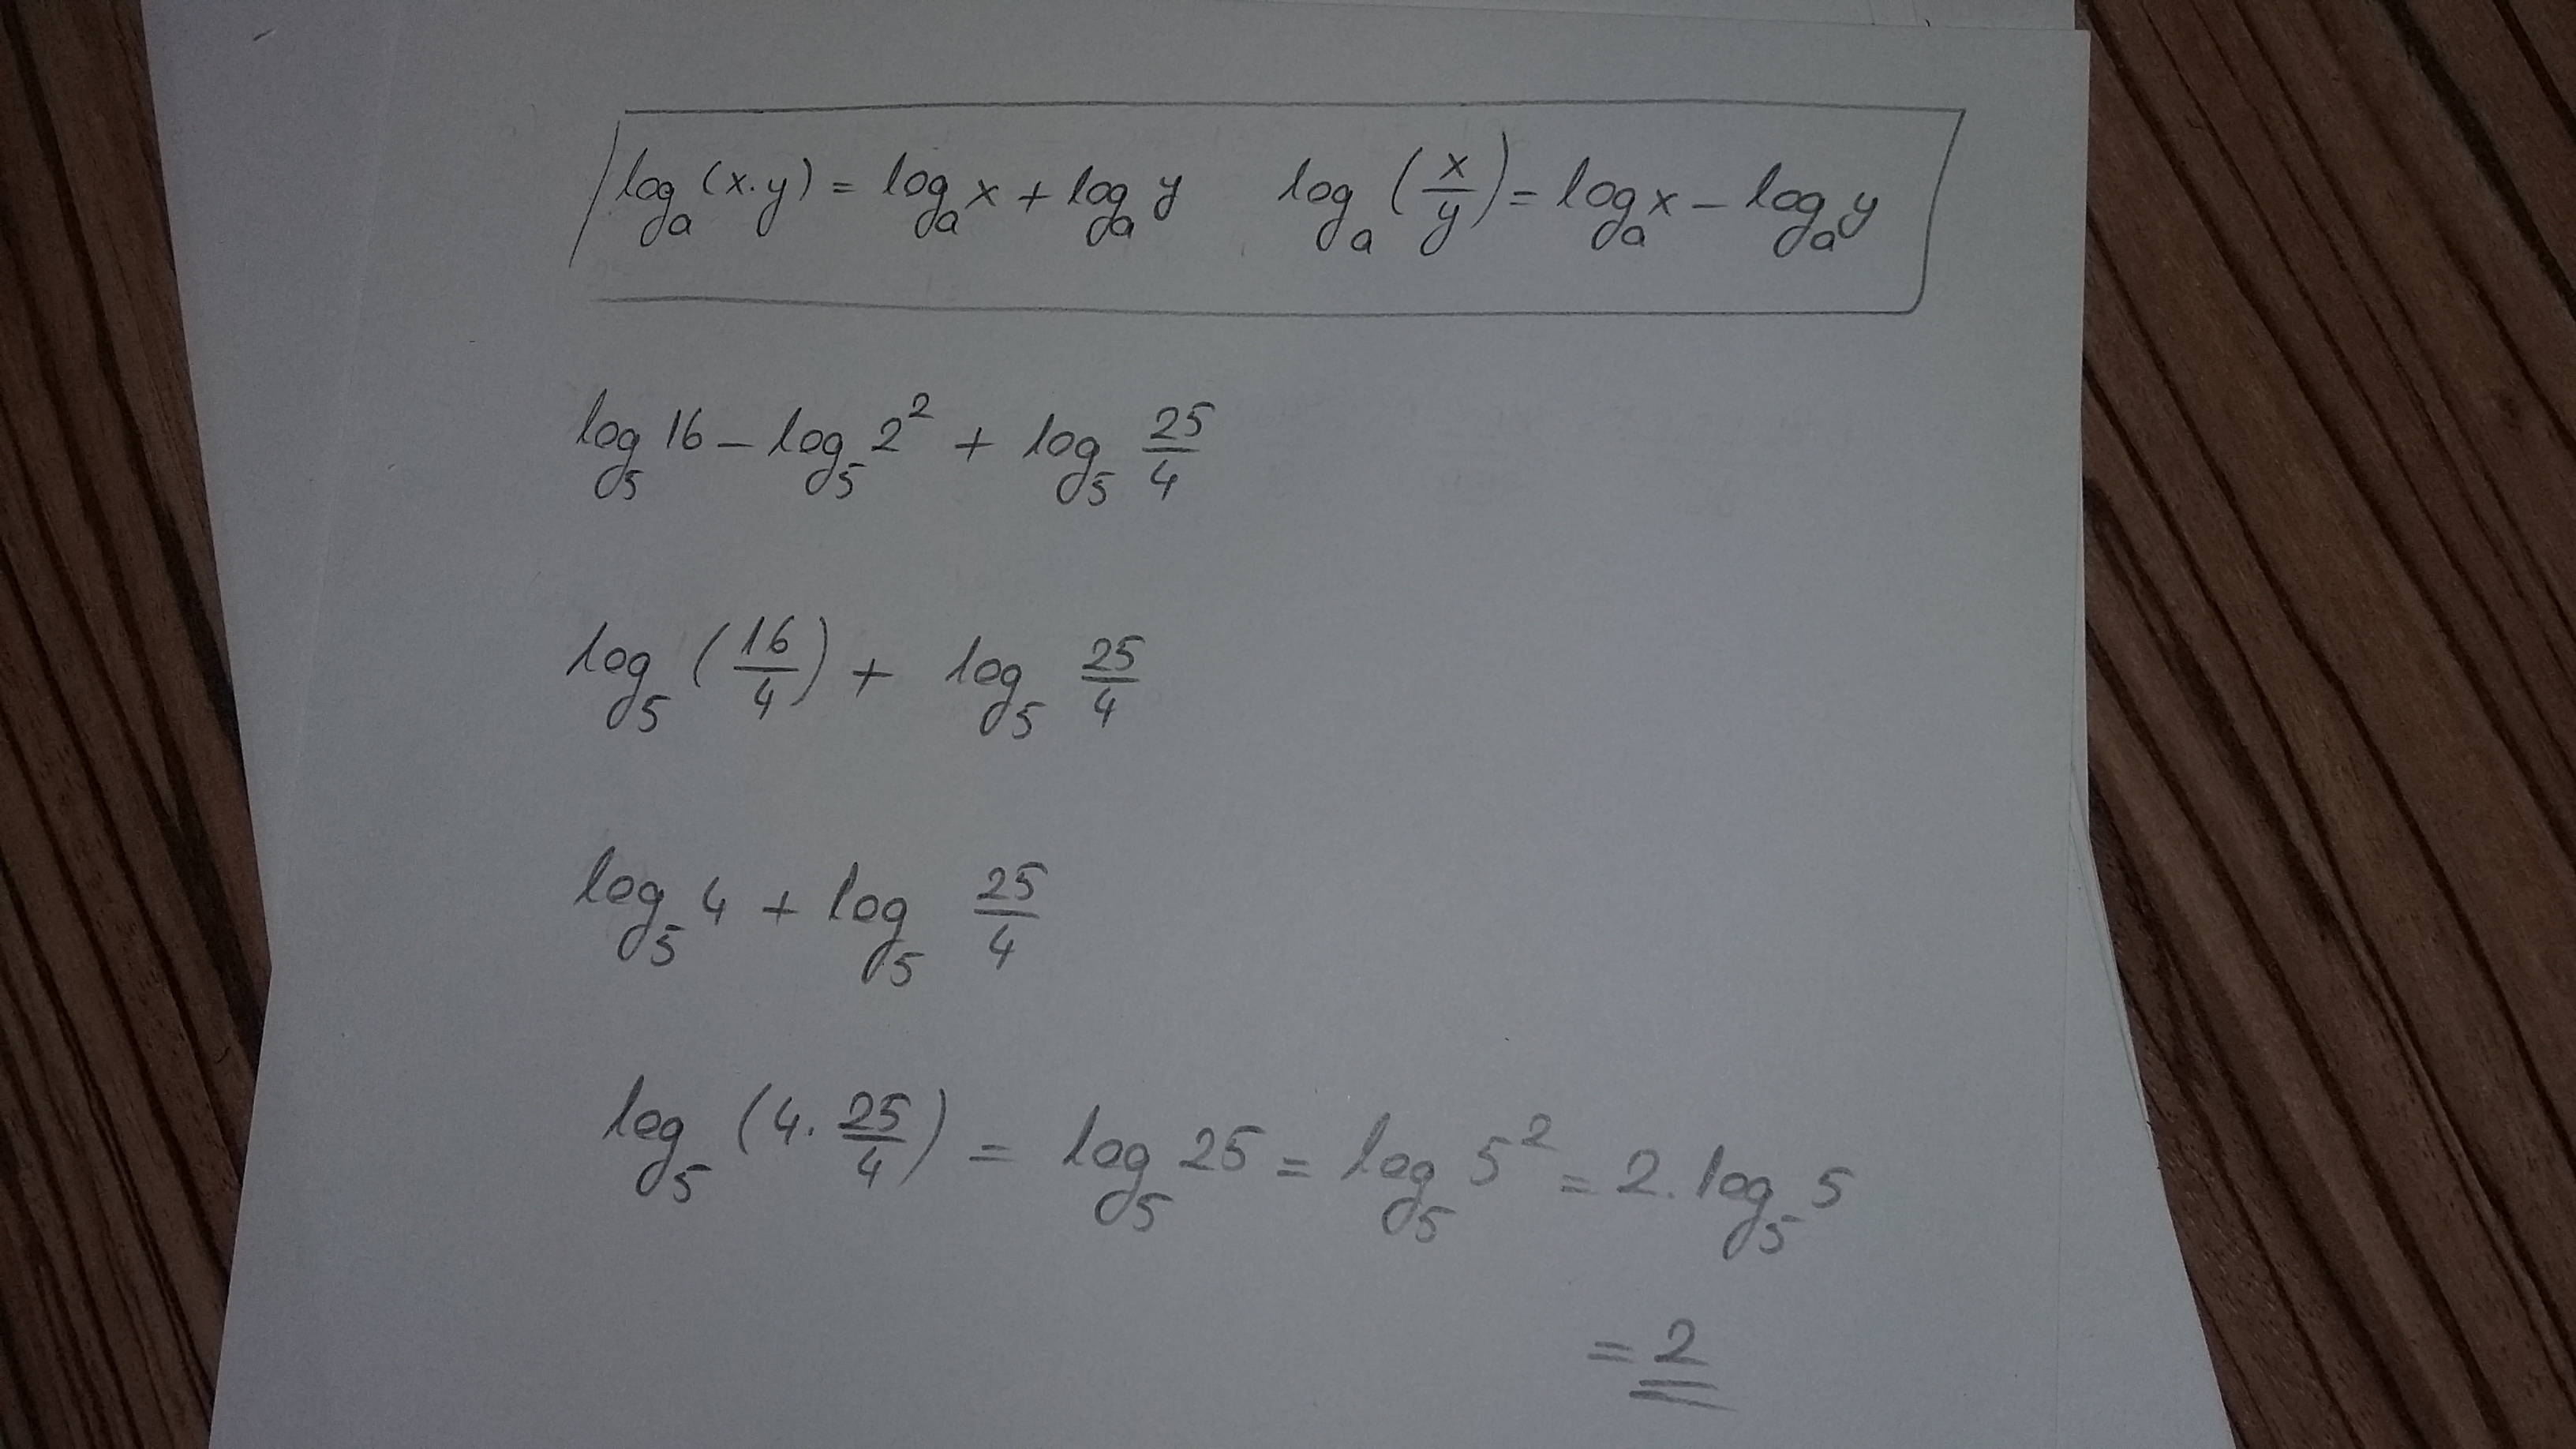 logₐ(x·y) = logₐ x + logₐ y    logₐ(x/y) = logₐ x − logₐ y
log₅ 16 − log₅ 2² + log₅ 25/4
log₅ (16/4) + log₅ 25/4
log₅ 4 + log₅ 25/4
log₅ (4·25/4) = log₅ 25 = log₅ 5² = 2·log₅ 5
= 2